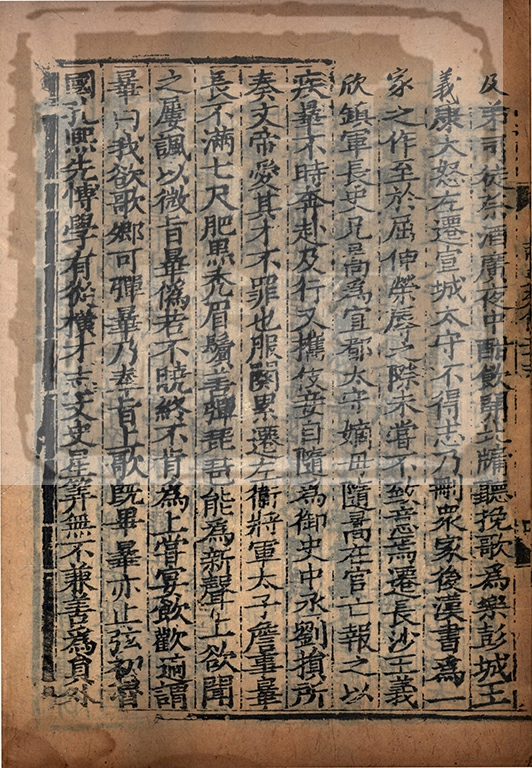 及弟司徒祭酒廣夜中酣飲開北牖聽挽歌爲樂彭城王
義康大怒左遷宣城太守不得志乃刪衆家後漢書爲一
家之作至於屈伸榮辱之際未嘗不致意焉遷長沙王義
欣鎮軍長史兄暠爲宜都太守嫡母隨暠在官亡報之以
疾曅不時奔赴及行又攜伎妾自隨爲御史中丞劉損所
奏文帝愛其才不罪也服闋累遷左衞將軍太子詹事曅
長不滿七尺肥黑禿眉鬢善彈琵琶能爲新聲上欲聞
之屢諷以微旨曅僞若不曉終不肯爲上嘗宴飲歡適謂
曅曰我欲歌卿可彈曅乃奉旨上歌既畢曅亦止弦初魯
國孔熙先博學有從橫才志文史星筭無不兼善爲員外